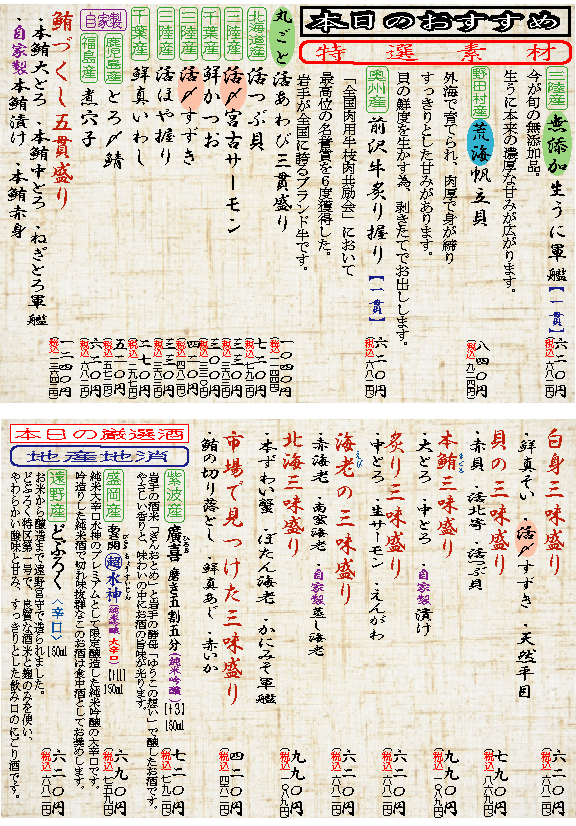 本日のおすすめ
特選素材
三陸産 無添加 生うに軍艦【一貫】 六二〇円
(税込 六八二円)
今が旬の無添加品。
生うに本来の濃厚な甘みが広がります。
野田村産 荒海帆立貝 八四〇円
(税込 九二四円)
外海で育てられ、肉厚で身が締り
すっきりとした甘みがあります。
貝の鮮度を生かす為、剥きたてでお出しします。
奥州産 前沢牛炙り握り【一貫】 六二〇円
(税込 六八二円)
「全国肉用牛枝肉共励会」において
最高位の名誉賞を6度獲得した。
岩手が全国に誇るブランド牛です。
丸ごと 活あわび三貫盛り 一〇四〇円
(税込 一一四四円)
北海道産 活つぶ貝 七二〇円
(税込 七九二円)
三陸産 活〆宮古サーモン 三二〇円
(税込 三五二円)
千葉産 鮮かつお 三〇〇円
(税込 三三〇円)
三陸産 活〆すずき 四二〇円
(税込 四六二円)
三陸産 活ほや握り 三三〇円
(税込 三六三円)
千葉産 鮮真いわし 二七〇円
(税込 二九七円)
鹿児島産 とろ〆鯖 五二〇円
(税込 五七二円)
自家製
福島産 煮穴子 六二〇円
(税込 六八二円)
鮪づくし五貫盛り 一二四〇円
(税込 一三六四円)
・本鮪大とろ ・本鮪中とろ ・ねぎとろ軍艦
・自家製本鮪漬け ・本鮪赤身
白身三味盛り 六二〇円
(税込 六八二円)
・鮮真そい ・活〆すずき ・天然平目
貝の三味盛り 七九〇円
(税込 八六九円)
・赤貝 ・活北寄 ・活つぶ貝
本鮪三味盛り 九九〇円
(税込 一〇八九円)
・大とろ ・中とろ ・自家製漬け
炙り三味盛り 六二〇円
(税込 六八二円)
・中とろ ・生サーモン ・えんがわ
海老の三味盛り 六二〇円
(税込 六八二円)
・赤海老 ・南蛮海老 ・自家製蒸し海老
北海三味盛り 九九〇円
(税込 一〇八九円)
・本ずわい蟹 ・ぼたん海老 ・かにみそ軍艦
市場で見つけた三味盛り 四二〇円
(税込 四六二円)
・鮪の切り落とし ・鮮真あじ ・赤いか
本日の厳選酒
地産地消
紫波産 廣喜 磨き五割五分(純米吟醸)【+3】180ml 七二〇円
(税込 七九二円)
岩手の酒米「ぎんおとめ」と岩手の酵母「ゆうこの想い」で醸したお酒です。
やさしい香りと、味わいの中にお酒の旨味が光ります。
盛岡産 あさ開 超水神(純米吟醸 大辛口)【+11】180ml 六九〇円
(税込 七五九円)
純米大辛口水神のプレミアムとして限定醸造した純米吟醸の大辛口です。
吟造りした純米酒で切れ味抜群なこのお酒は食中酒としてお奨めします。
遠野産 どぶろく〈辛口〉180ml 六二〇円
(税込 六八二円)
お米から醸造まで遠野宮守で造られました。
どぶろく特区第一号で、良質な酒米と麹のみを使い、
やわらかい酸味と甘み、すっきりとした飲み口のにごり酒です。